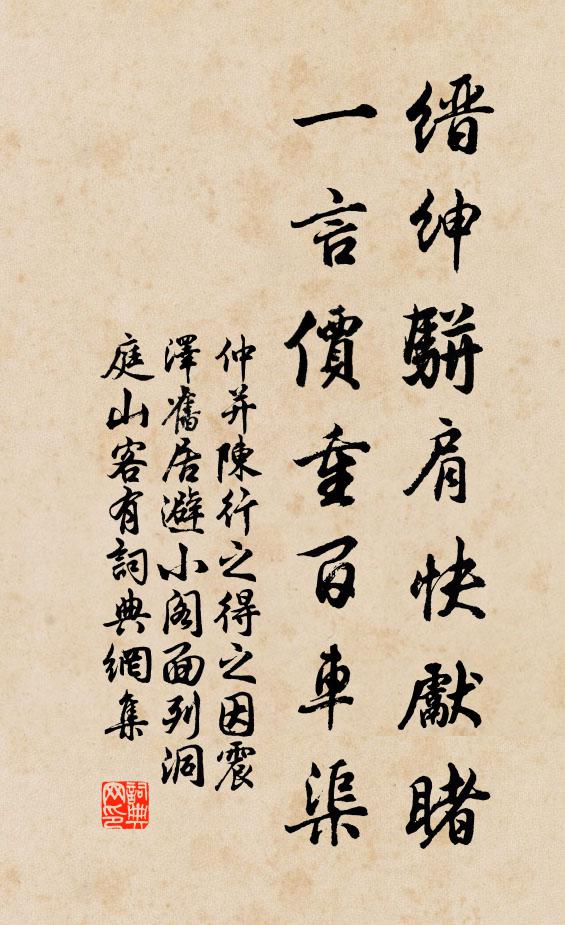 縉紳駢肩快獻睹
一言價重百車渠
仲并陳行之得之因震
澤舊居避小閣面列洞
庭山客有詞典網集
詞典網印